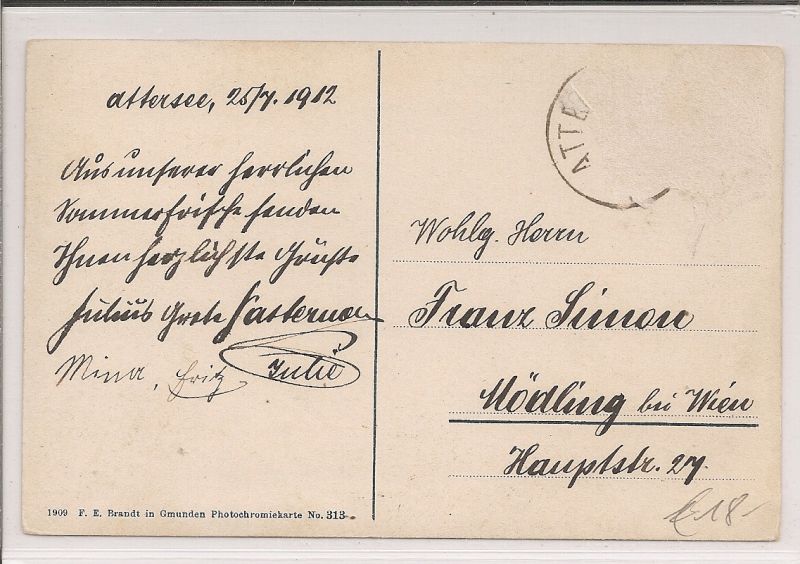 Attersee, 25/7. 1912
Aus unserer herrlichen
Sommerfrische senden
Ihnen herzlichste Grüße
Julius Grete
Mina, Fritz Julie
ATTE
Wohlg. Herrn
Franz Simon
Mödling bei Wien
Hauptstr. 27.
1909 F. E. Brandt in Gmunden Photochromiekarte No. 313
€ 18.-